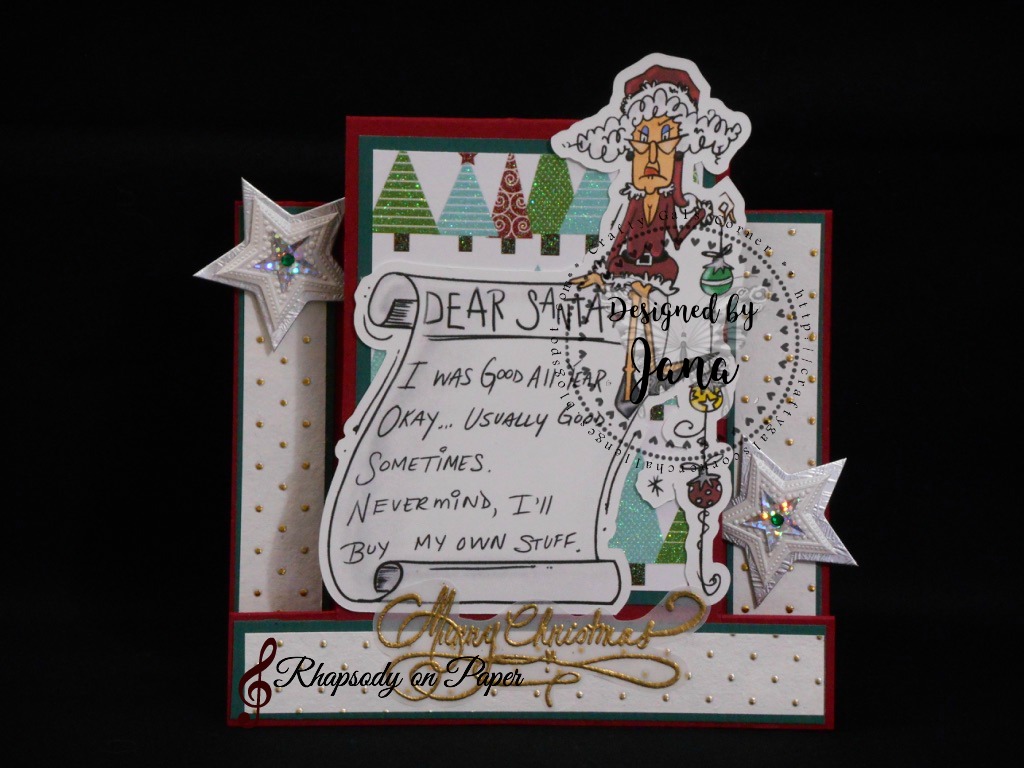 DEAR SANTA
I WAS GOOD All YEAR
OKAY... USUALLY GOOD
SOMETIMES.
NEVERMIND, I'll
BUY MY OWN STUFF.
Designed by
Jana
Merry Christmas
Rhapsody on Paper